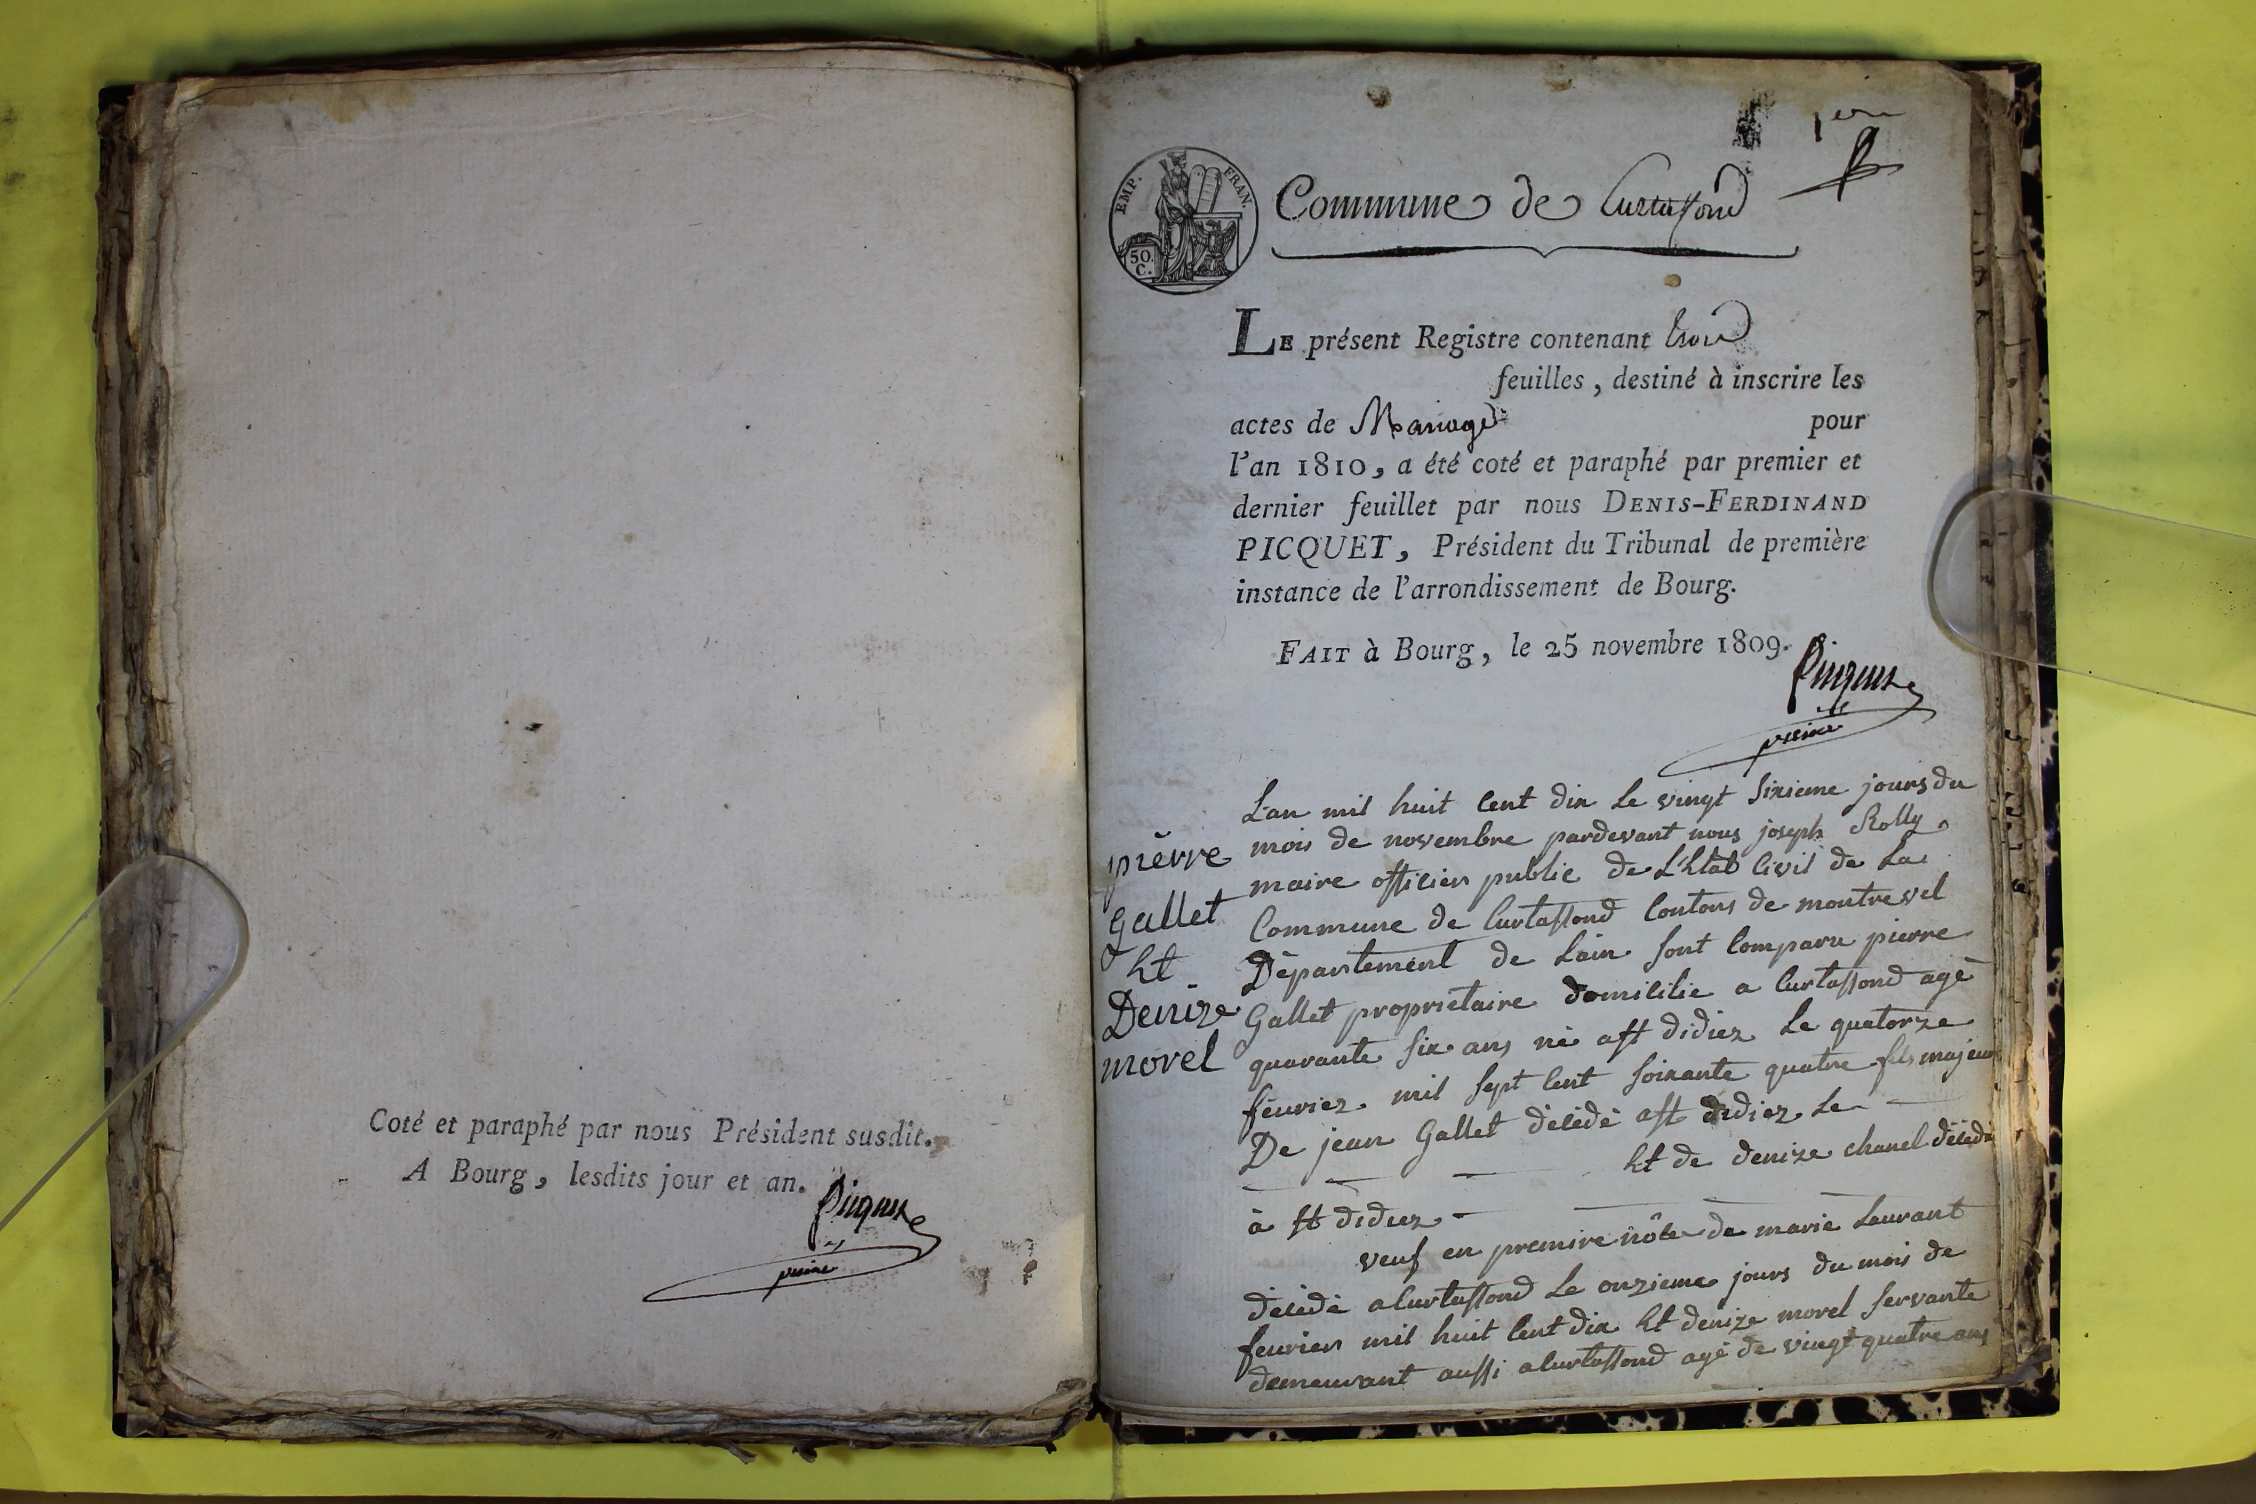 Coté et paraphé par nous Président susdit.
A Bourg, lesdits jour et an.
Picquet
1ere
EMP. FRAN.
50.
C.
Commune de Curtafond
LE présent Registre contenant trois
feuilles, destiné à inscrire les
actes de Mariage pour
l'an 1810, a été coté et paraphé par premier et
dernier feuillet par nous DENIS-FERDINAND
PICQUET, Président du Tribunal de première
instance de l'arrondissement de Bourg.
FAIT à Bourg, le 25 novembre 1809.
Picquet
pièrre
Gallet
Et
Denize
morel
L'an mil huit Cent dix Le vingt Sixieme jours du
mois de novembre pardevant nous joseph Rolly
maire officier public de L'Etat Civil de La
Commune de Curtaffond Contons de montrevel
Département de Lain sont Comparu pierre
Gallet propriétaire domicilie a Curtaffond agé
quarante six ans né a St didiez Le quatorze
fevriez mil sept Cent soixante quatre fils majeur
De jean Gallet décédé a St didiez Le
Et de denize chanel décédé
à St didiez
veuf en premire nôce de marie Laurant
décédé a Curtaffond Le onzieme jours du mois de
fevrier mil huit Cent dix Et denize morel servante
demeurant aussi a Curtaffond agé de vingt quatre ans